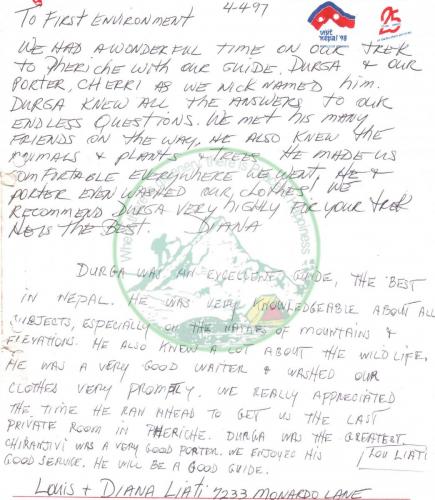 To First Environment
4-4-97
visit
Nepal '98
25
We had a wonderful time on our trek
to Pheriche with our guide. Durga & our
porter, Cherri as we nick named him.
Durga knew all the answers to our
endless questions. We met his many
friends on the way. He also knew the
animals & plants & trees He made us
comfortable everywhere we went. He &
porter even washed our clothes! We
recommend Durga very highly for your trek
He is the best. Diana
Durga was an excellent guide, the best
in Nepal. He was very knowledgeable about all
subjects, especially on the names of mountains &
elevations. He also knew a lot about the wild life.
He was a very good waiter & washed our
clothes very promptly. We really appreciated
the time he ran ahead to get us the last
private room in Pheriche. Durga was the greatest.
Chiranjivi was a very good porter. We enjoyed his
good service. He will be a good guide.
Lou Liati
Louis + Diana Liati 7233 Monardo Lane